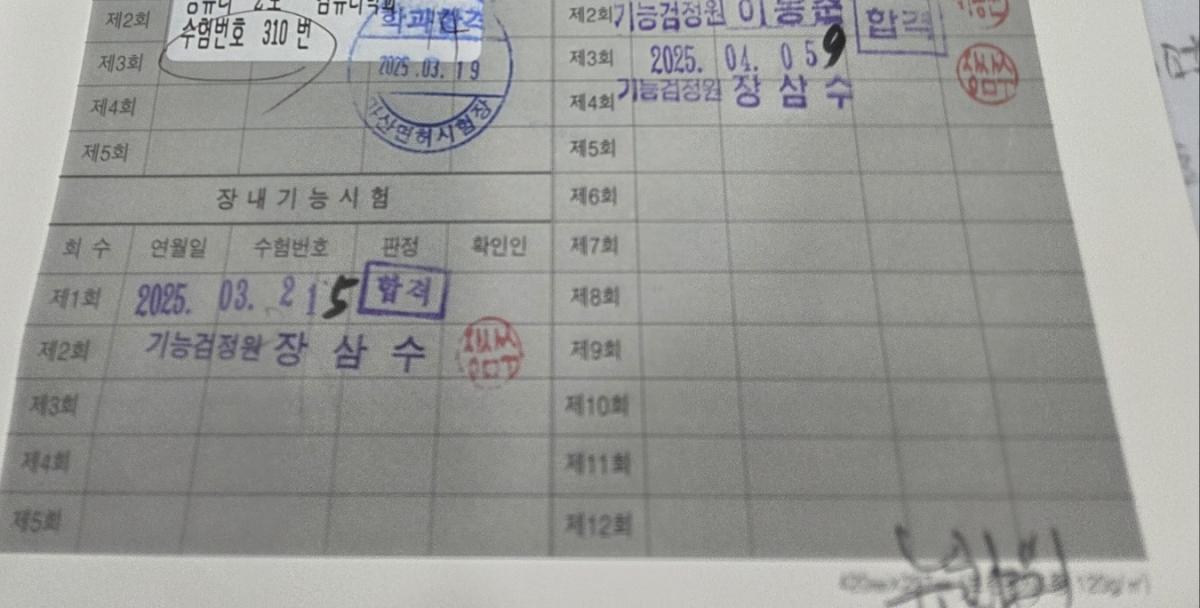 제2회
수험번호 310 번
제3회
학과합격
2025.03.19
제4회
면허시험장
제5회
장내기능시험
회 수 연월일 수험번호 판정 확인인
제1회 2025. 03. 215 합격
제2회 기능검정원 장 삼 수
제3회
제4회
제5회
제2회 기능검정원 합격
제3회 2025. 04. 059
제4회 기능검정원 장 삼 수
제5회
제6회
제7회
제8회
제9회
제10회
제11회
제12회